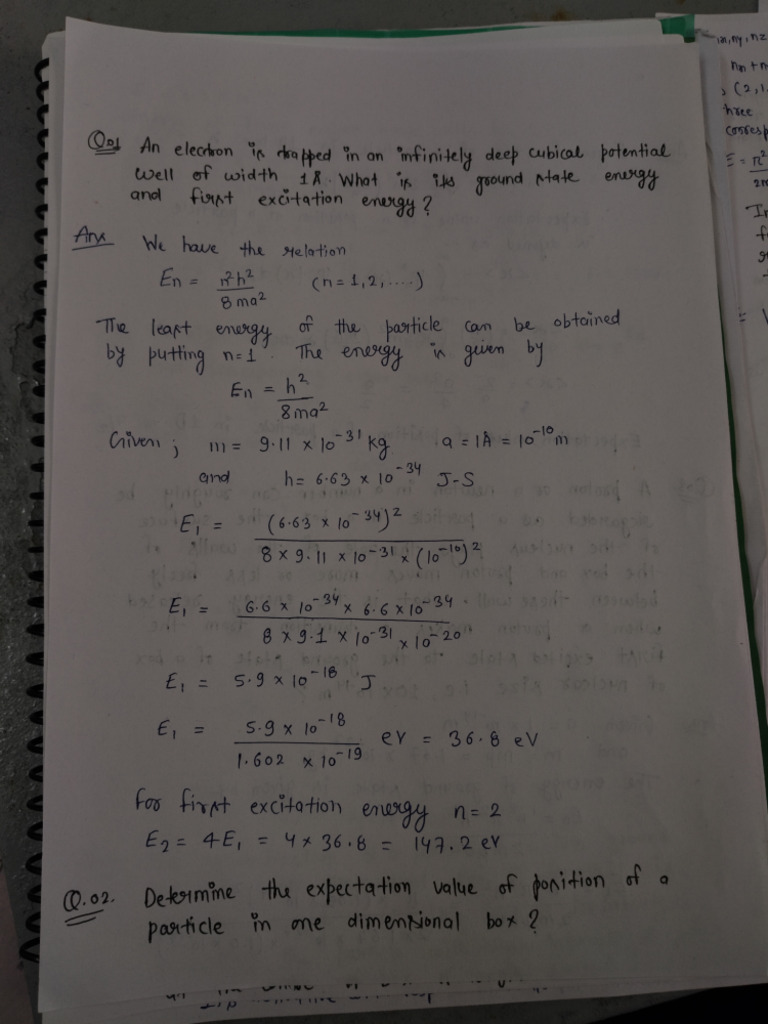 Q.01 An electron is trapped in an infinitely deep cubical potential
well of width 1Å. What is its ground state energy
and first excitation energy?
Ans We have the relation
En = n²h² / 8ma² (n = 1,2,....)
The least energy of the particle can be obtained
by putting n=1. The energy is given by
En = h² / 8ma²
Given; m = 9.11 × 10⁻³¹ kg. a = 1Å = 10⁻¹⁰ m
and h = 6.63 × 10⁻³⁴ J-S
E₁ = (6.63 × 10⁻³⁴)² / 8 × 9.11 × 10⁻³¹ × (10⁻¹⁰)²
E₁ = 6.6 × 10⁻³⁴ × 6.6 × 10⁻³⁴ / 8 × 9.1 × 10⁻³¹ × 10⁻²⁰
E₁ = 5.9 × 10⁻¹⁸ J
E₁ = 5.9 × 10⁻¹⁸ / 1.602 × 10⁻¹⁹ eV = 36.8 eV
For first excitation energy n = 2
E₂ = 4E₁ = 4 × 36.8 = 147.2 eV
Q.02. Determine the expectation value of position of a
particle in one dimensional box?
nx, ny, nz
(2,1,
three